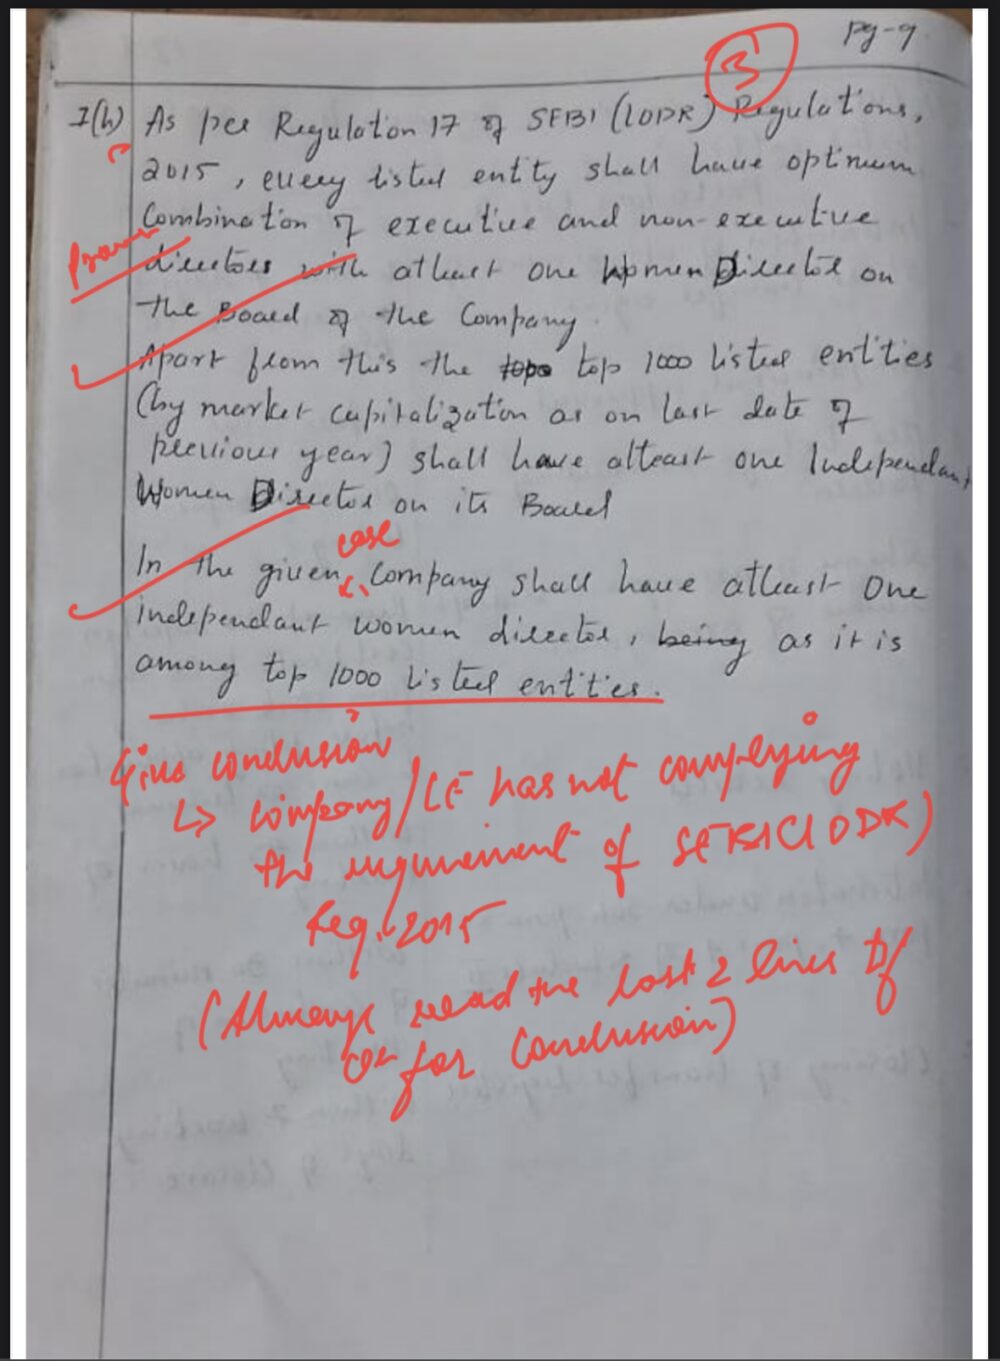 pg-9
3
I(h) As per Regulation 17 of SEBI (LODR) Regulations,
2015, every listed entity shall have optimum
Combination of executive and non-executive
directors with atleast one Women Director on
the Board of the Company.
Apart from this the top 1000 listed entities
(by market capitalization as on last date of
previous year) shall have atleast one Independant
Women Director on its Board
case
In the given, Company shall have atleast One
independant women director, being as it is
among top 1000 listed entities.
Give conclusion
↳ company/LE has not complying
the requirement of SEBI(LODR)
Reg. 2015
(Always read the last 2 lines of
Qr for Conclusion)